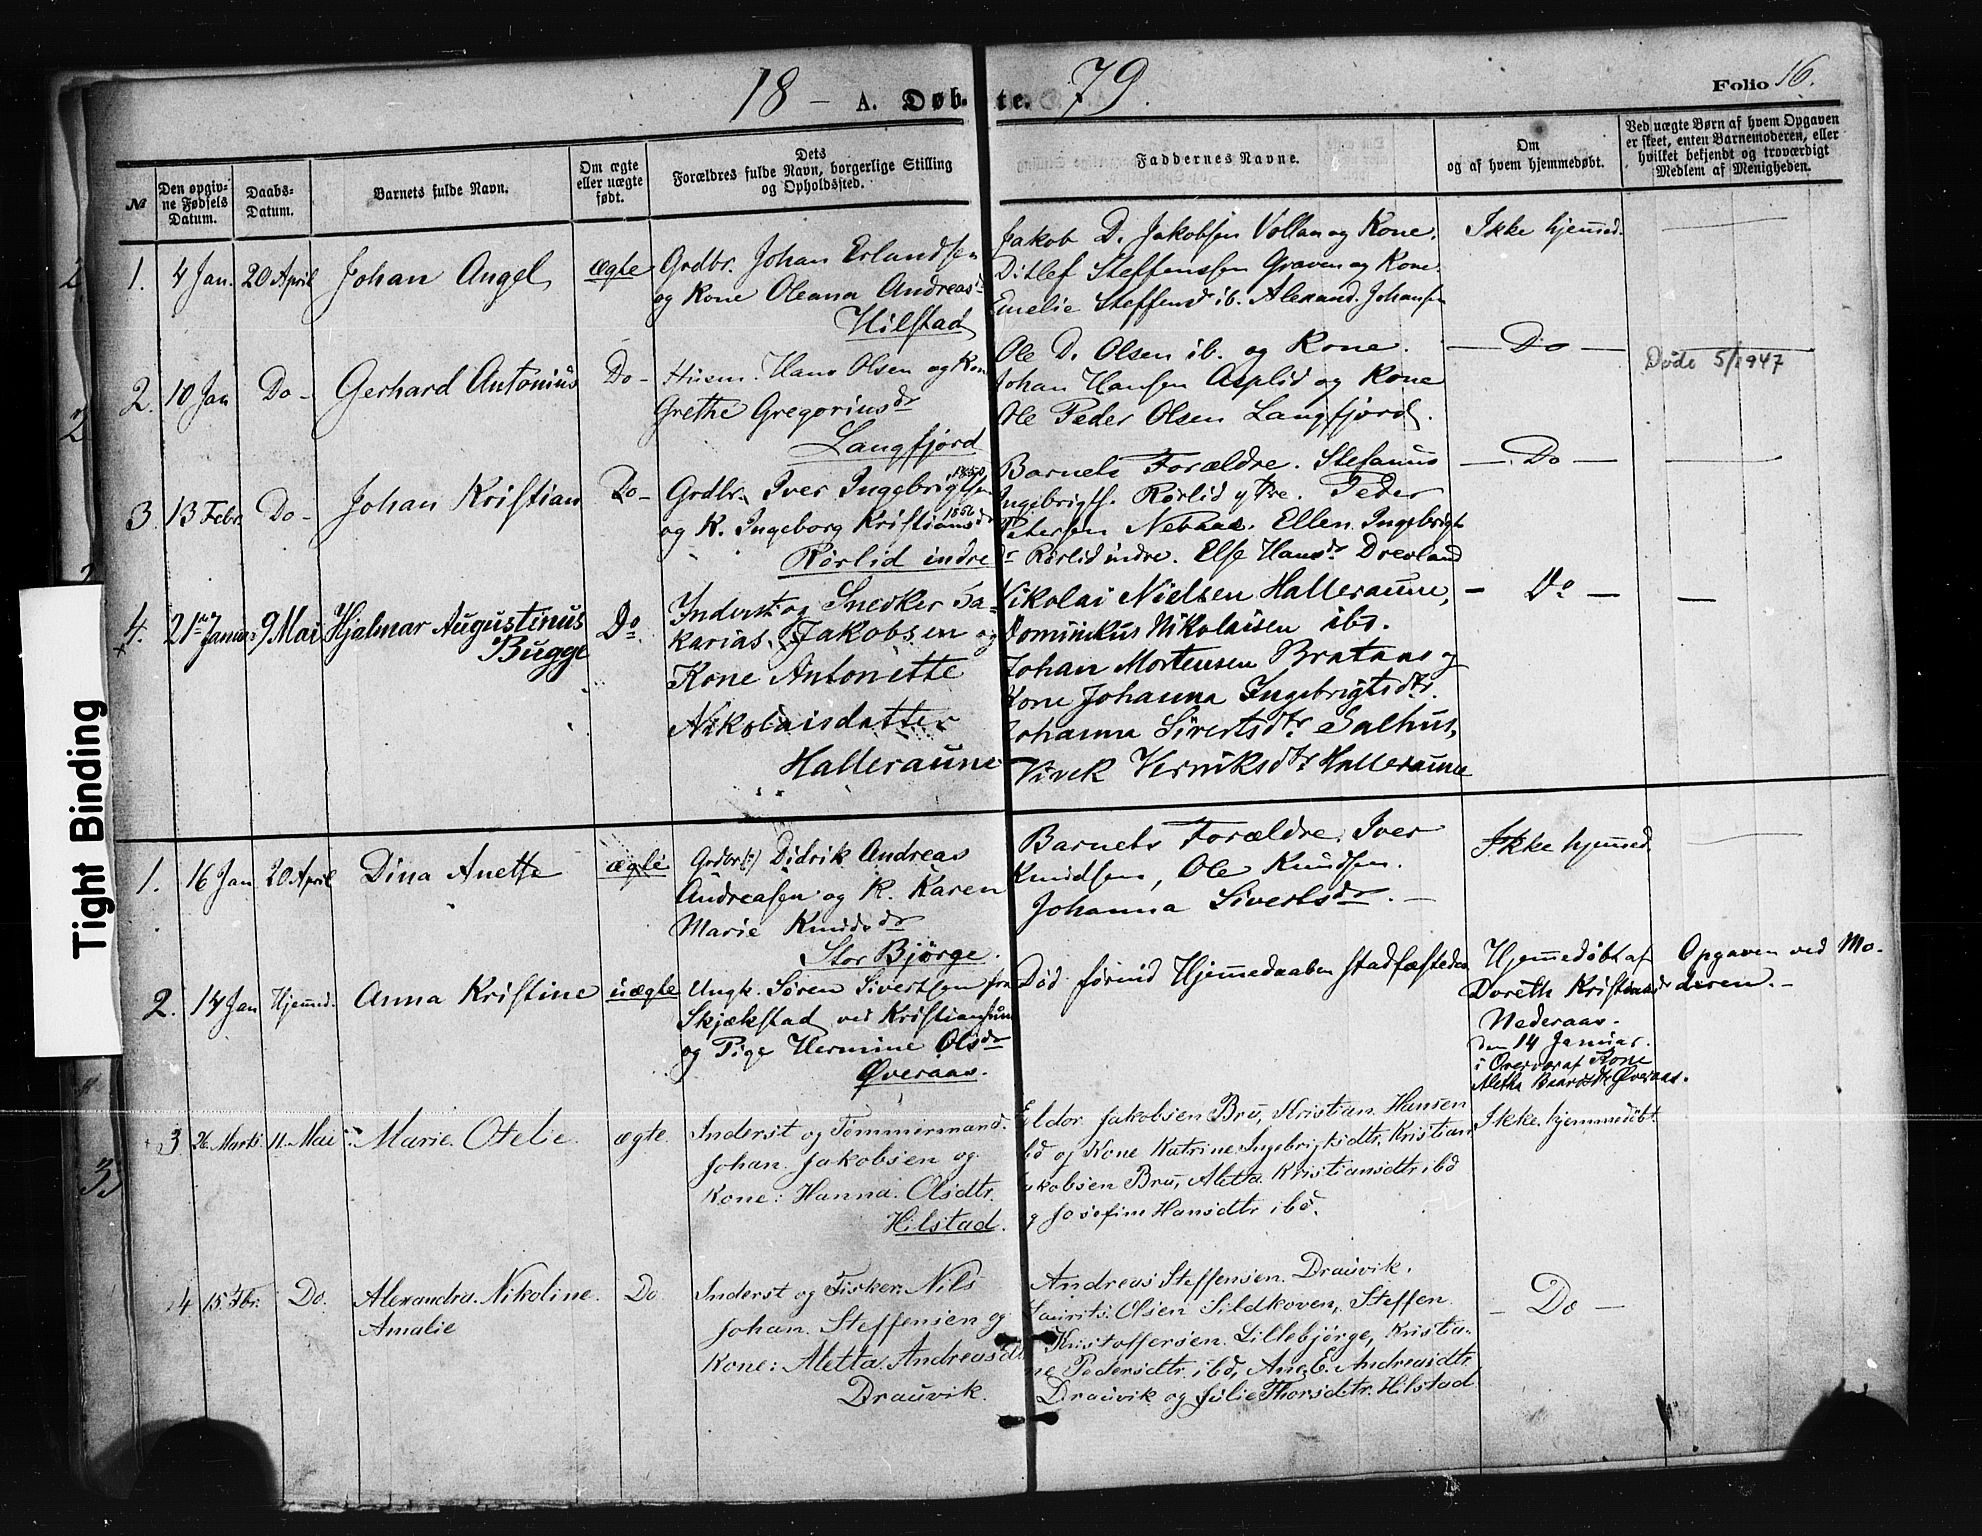 18 – A. Døb- te. 79.
Folio 16.
№
Den opgiv-
ne Fødsels
Datum.
Daabs-
Datum.
Barnets fulde Navn.
Om ægte
eller uægte
født.
Dets
Forældres fulde Navn, borgerlige Stilling
og Opholdssted.
Faddernes Navne.
Om
og af hvem hjemmedøbt.
Ved uægte Børn af hvem Opgaven
er skeet, enten Barnemoderen, eller
hvilket bekjendt og troværdigt
Medlem af Menigheden.
1. 4 Jan. 20 April Johan Angel ægte
Grdbr. Johan Erlandsen
og Kone Oleana Andreasdr
Hilstad
Jakob D. Jakobsen Vollan og Kone.
Ditlef Steffenssen Graven og Kone.
Emelie Steffensd ib. Alexand. Johansen
Ikke hjemmed.
2. 10 Jan Do - Gerhard Antonius Do -
Husm. Hans Olsen og Kone
Grethe Gregoriusdr
Langfjord
Ole D. Olsen ib. og Kone.
Johan Hansen Asplid og Kone
Ole Peder Olsen Langfjord.
— Do —
Døde 5/1947
3. 13 Febr. Do - Johan Kristian Do -
Grdbr. Iver Ingebrigtsen
og K. Ingeborg Kristiansdr 1856
Rørlid indre
Barnets Forældre. Stefanus
Ingebrigts. Rørlid ytre. Peder
Petersen Neraas. Ellen Ingebrigts
dr Rørlid indre. Else Hansdr Drevland
— Do —
4. 21de Januar 9 Mai Hjalmar Augustinus
Bugge
Do.
Inderst og Snedker Sa-
karias Jakobsen og
Kone Antonette
Nikolaisdatter
Halleraune
Nikolai Nielsen Halleraune,
Dominikus Nikolaisen ibd.
Johan Mortensen Brataas og
Kone Johanna Ingebrigtsdtr.
Johanna Sivertsdtr Salhus,
Vivek Henriksdtr Halleraune
— Do —
1. 16 Jan 20 April Dina Anette ægte
Didrik Andreas
Andreasen og K. Karen
Marie Knudsdr
Stor Bjørge.
Barnets Forældre. Iver
Knudsen, Ole Knudsen.
Johanna Sivertsdr. —
Ikke hjemmed.
2. 14 Jan Hjemmed. Anna Kristine uægte
Ungk. Søren Sivertsen fra
Skjækstad ved Kristiansund
og Pige Hermine Olsdr
Øveraas.
Død førend Hjemmedaaben stadfæstedes
Hjemmedøbt af
Doreth Kristiansdr
Nederaas.
den 14 Januar.
i Overvær af Kone
Aletha Baardsdtr Øveraas.
Opgaven ved Mo-
deren. —
3 26. Marts 11. Mai Marie Otelie ægte
Inderst og Tømmermand.
Johan Jakobsen og
Kone: Hanna Olsdtr.
Hilstad.
Eldor Jakobsen Brø, Kristian Hansen
ibd og Kone Katrine Ingebrigtsdtr, Kristian
Jakobsen Brø, Aletta Kristiansdtr ibd
og Josefine Hansdtr ibd.
Ikke hjemmedøbt.
4 15. Fbr. Do. Alexandra Nikoline
Amalie
Do
Inderst og Fisker: Nils
Johan Steffensen og
Kone: Aletta Andreasdtr
Drauvik.
Andreas Steffensen Drauvik,
Laurits Olsen Sildkoven, Steffen
Kristoffersen Lillebjørge, Kristia-
ne Pedersdtr ibd, Ane E. Andreasdtr
Drauvik og Julie Thorsdtr. Hilstad
— Do —
Tight Binding